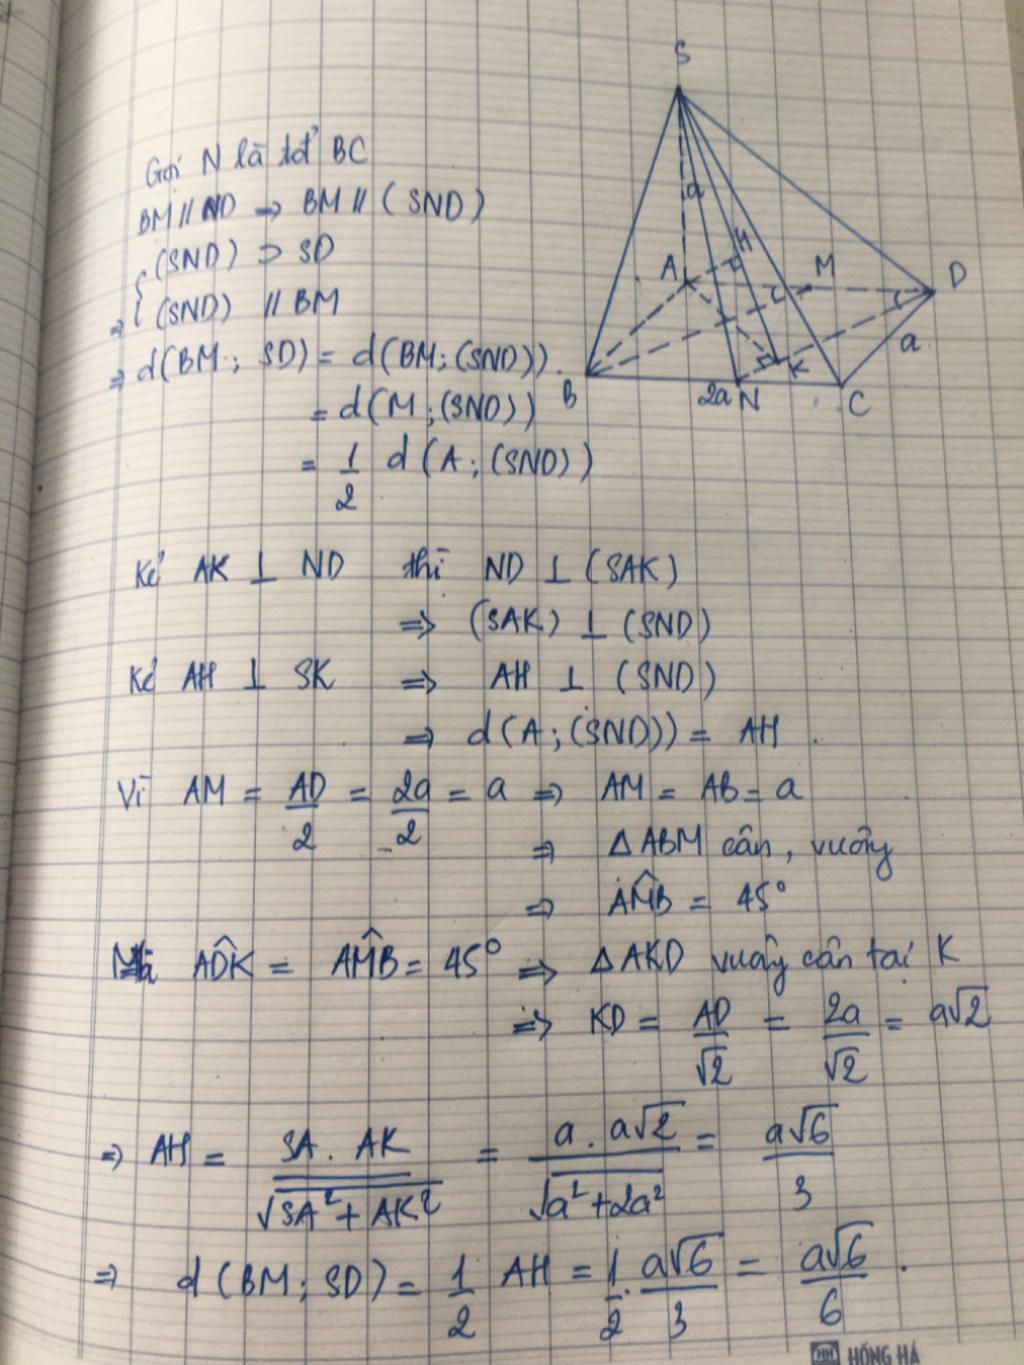 Gọi N là tđ BC
BM // ND => BM // (SND)
(SND) ⊃ SD
=> { (SND) // BM
=> d(BM; SD) = d(BM; (SND)).
= d(M; (SND))
= 1/2 d(A; (SND))
S
a
H
A
M
D
a
K
B
2a
N
C
Kẻ AK ⊥ ND thì ND ⊥ (SAK)
=> (SAK) ⊥ (SND)
Kẻ AH ⊥ SK => AH ⊥ (SND)
=> d(A; (SND)) = AH.
Vì AM = AD/2 = 2a/2 = a => AM = AB = a
=> ΔABM cân, vuông
=> AM̂B = 45°
Mà AD̂K = AM̂B = 45° => ΔAKD vuông cân tại K
=> KD = AD/√2 = 2a/√2 = a√2
=> AH = SA.AK/√(SA²+AK²) = a.a√2/√(a²+2a²) = a√6/3
=> d(BM; SD) = 1/2 AH = 1/2 . a√6/3 = a√6/6.
HH HỒNG HÀ